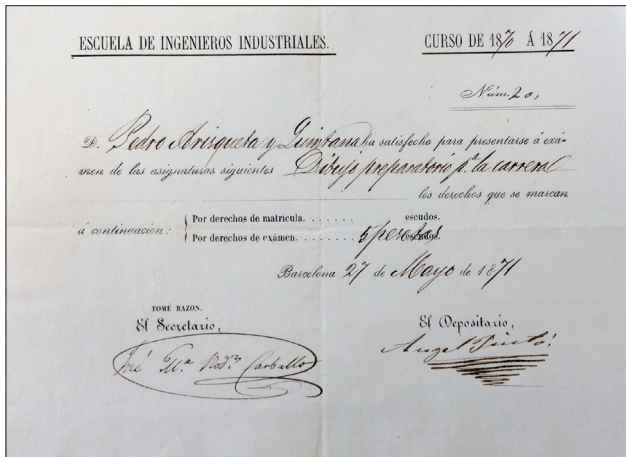 ESCUELA DE INGENIEROS INDUSTRIALES. CURSO DE 1870 Á 1871
Núm. 20,
D. Pedro Arisqueta y Quintana ha satisfecho para presentarse á exá-
men de las asignaturas siguientes Dibujo preparatorio pª. la carrera
los derechos que se marcan
á continuacion: Por derechos de matrícula. . . . . . . escudos.
Por derechos de exámen. . . . . . . . 5 pesetas escudos.
Barcelona 27 de Mayo de 1871
TOMÉ RAZON.
El Secretario, El Depositario,
José Mª. Rodz. Carballo Angel Pintó